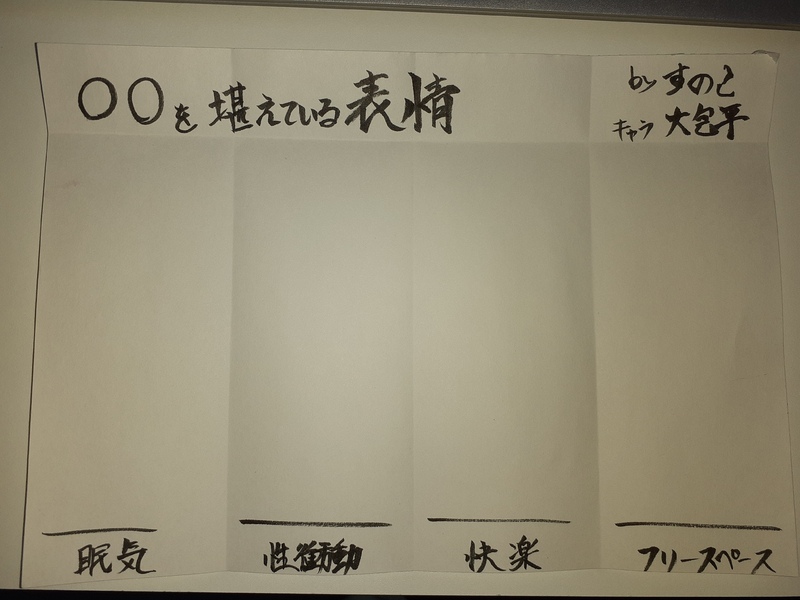 〇〇を堪えている表情
by すのこ
キャラ 大包平
眠気
性衝動
快楽
フリースペース